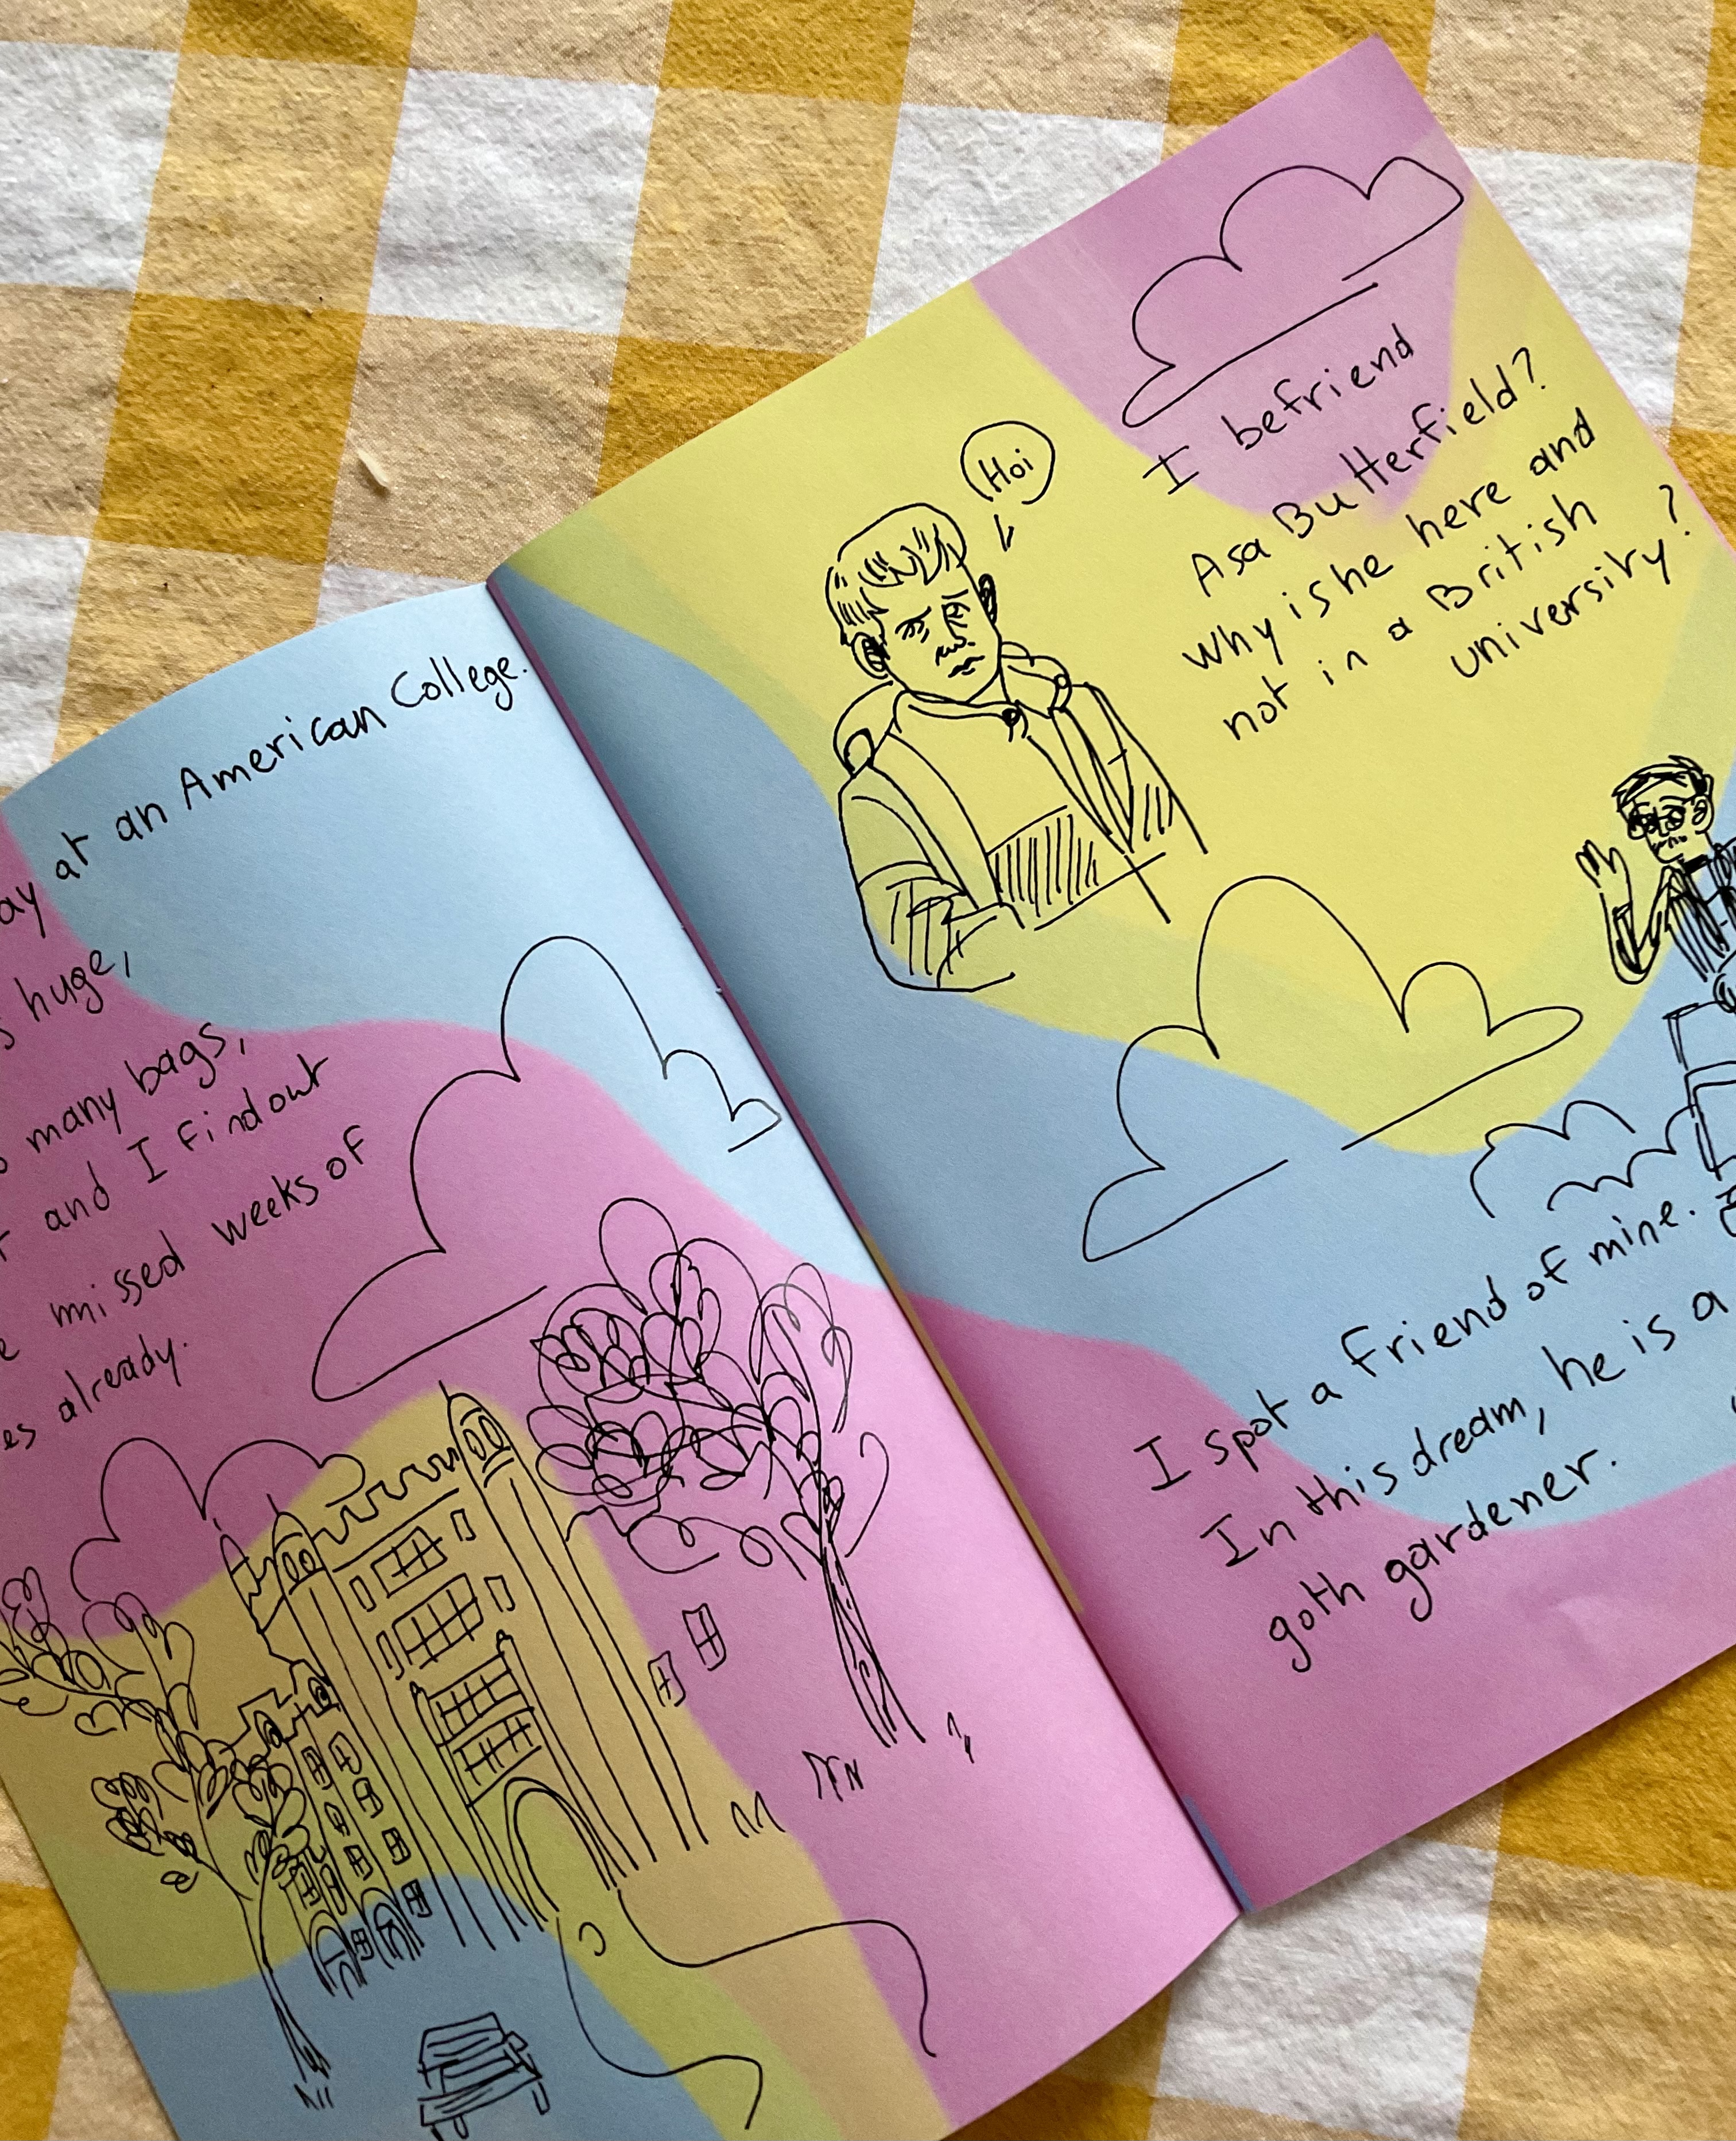 at an American College.
huge,
many bags,
and I find out
missed weeks of
already.
Hoi
I befriend
Asa Butterfield?
Why is he here and
not in a British
university?
I spot a friend of mine.
In this dream, he is a
goth gardener.